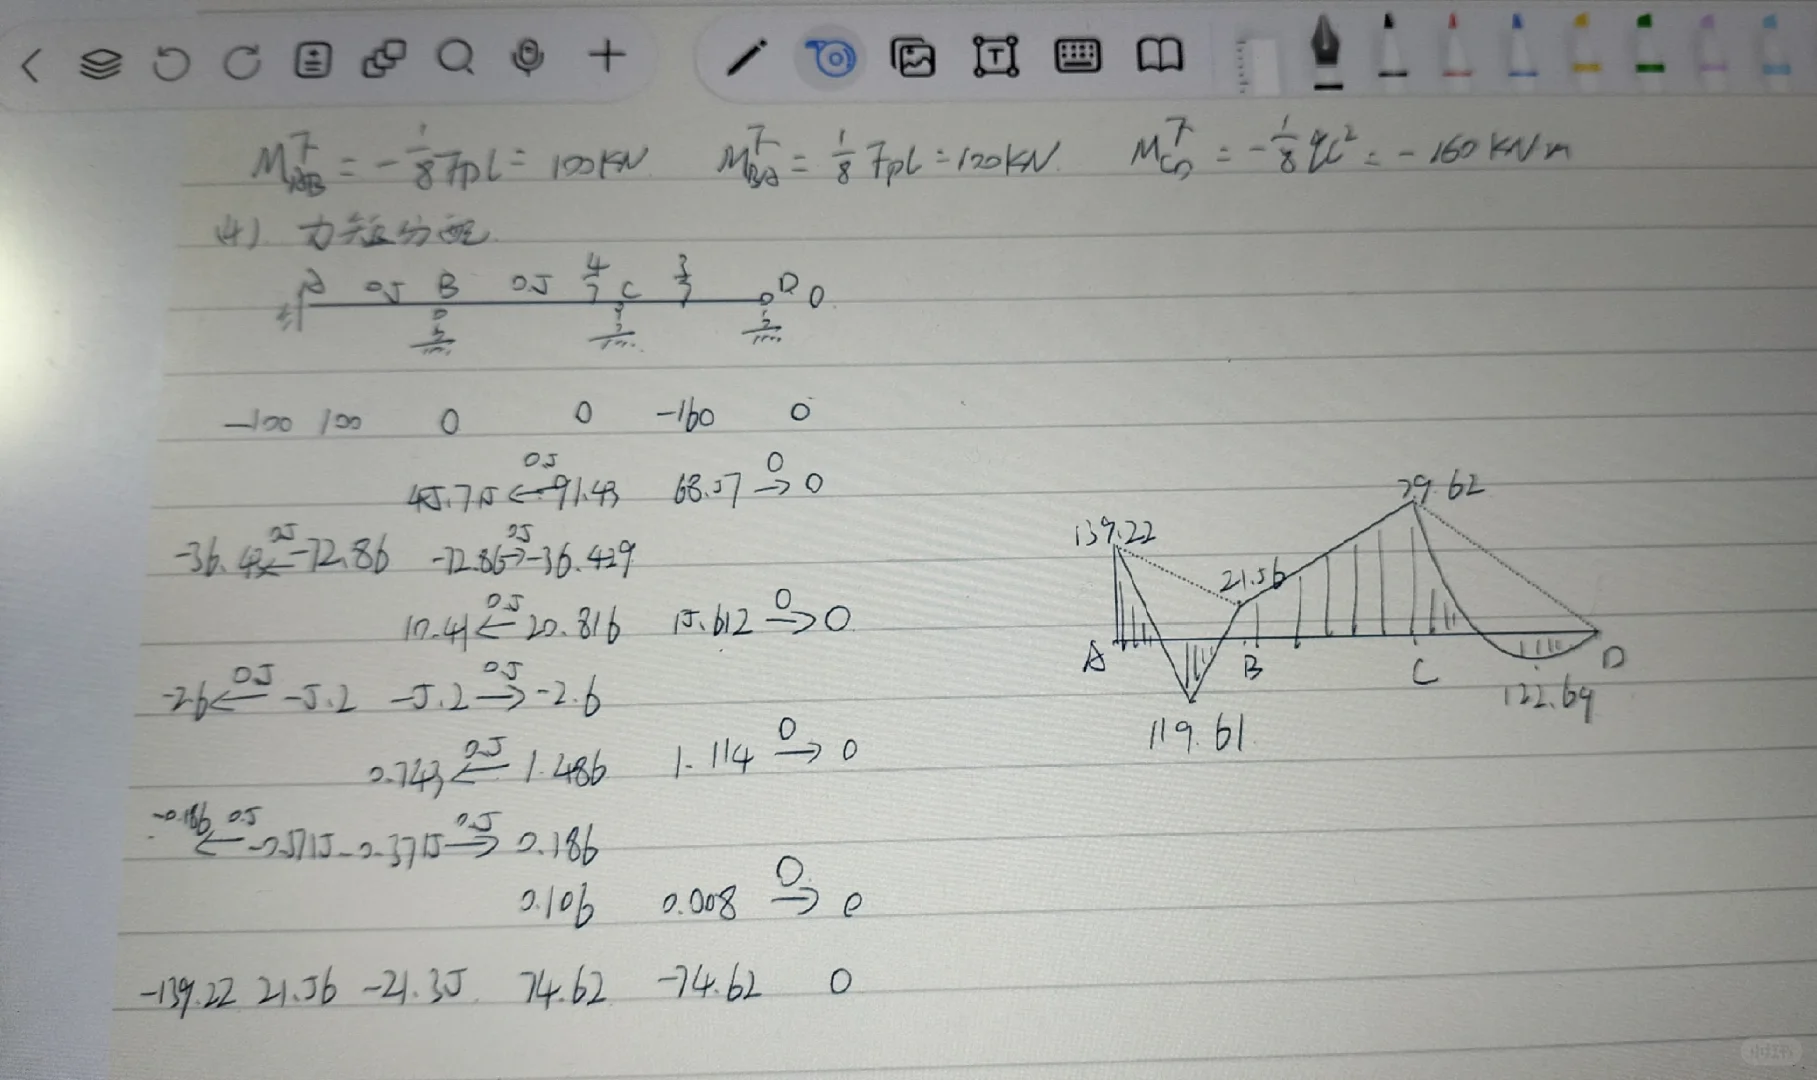 M_AB^F = -1/8 Fpl = 100KN M_BA^F = 1/8 Fpl = 100KN. M_CD^F = -1/8 ql² = -160KN m
(4) 力矩分配
A 0.5 B 0.5 4/7 C 3/7 D 0
-100 100 0 0 -160 0
0.5 0
45.715 ← 91.43 68.57 → 0
0.5 0.5
-36.43 ← -72.86 -72.86 → -36.429
0.5 0
10.41 ← 20.816 15.612 → 0
0.5 0.5
-2.6 ← -5.2 -5.2 → -2.6
0.5 0
0.743 ← 1.486 1.114 → 0
-0.186 0.5 0.5
← -0.3715 -0.3715 → 0.186
0
0.106 0.008 → 0
-139.22 21.56 -21.35 74.62 -74.62 0
79.62
139.22
21.56
A B C D
119.61
122.69
小红书